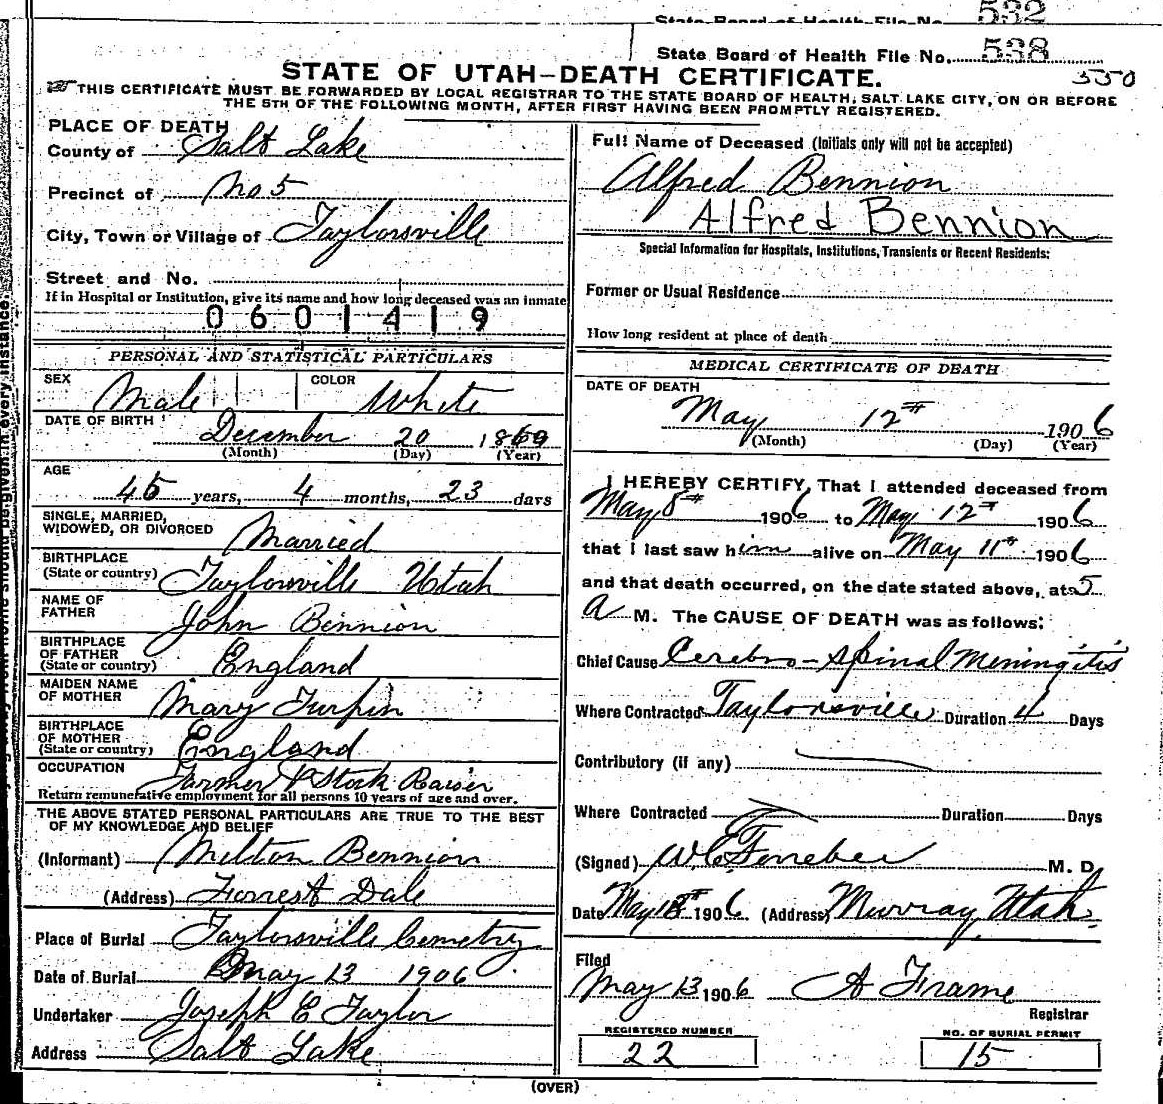 State Board of Health File No. 532
State Board of Health File No. 538
550
STATE OF UTAH—DEATH CERTIFICATE.
THIS CERTIFICATE MUST BE FORWARDED BY LOCAL REGISTRAR TO THE STATE BOARD OF HEALTH, SALT LAKE CITY, ON OR BEFORE
THE 5TH OF THE FOLLOWING MONTH, AFTER FIRST HAVING BEEN PROMPTLY REGISTERED.
PLACE OF DEATH
County of Salt Lake
Precinct of No 5
City, Town or Village of Taylorsville
Street and No.
If in Hospital or Institution, give its name and how long deceased was an inmate
0601419
PERSONAL AND STATISTICAL PARTICULARS
SEX Male COLOR White
DATE OF BIRTH December 20 18
(Month) (Day) (Year)
AGE
45 years, 4 months, 23 days
SINGLE, MARRIED,
WIDOWED, OR DIVORCED Married
BIRTHPLACE
(State or country) Taylorsville Utah
NAME OF
FATHER John Bennion
BIRTHPLACE
OF FATHER
(State or country) England
MAIDEN NAME
OF MOTHER Mary Turpin
BIRTHPLACE
OF MOTHER
(State or country) England
OCCUPATION Farmer & Stock Raiser
Return remunerative employment for all persons 10 years of age and over.
THE ABOVE STATED PERSONAL PARTICULARS ARE TRUE TO THE BEST
OF MY KNOWLEDGE AND BELIEF
(Informant) Milton Bennion
(Address) Forrest Dale
Place of Burial Taylorsville Cemetry
Date of Burial May 13 1906
Undertaker Joseph E Taylor
Address Salt Lake
Full Name of Deceased (Initials only will not be accepted)
Alfred Bennion
Alfred Bennion
Special Information for Hospitals, Institutions, Transients or Recent Residents:
Former or Usual Residence
How long resident at place of death
MEDICAL CERTIFICATE OF DEATH
DATE OF DEATH
May 12th 1906
(Month) (Day) (Year)
I HEREBY CERTIFY, That I attended deceased from
May 8th 1906 to May 12th 1906
that I last saw him alive on May 11th 1906
and that death occurred, on the date stated above, at 5
a M. The CAUSE OF DEATH was as follows:
Chief Cause Cerebro-spinal Meningitis
Where Contracted Taylorsville Duration 4 Days
Contributory (if any)
Where Contracted Duration Days
(Signed) M. D.
Date May 1906. (Address) Murray Utah.
Filed
May 13 1906 A Frame
Registrar
REGISTERED NUMBER
22
NO. OF BURIAL PERMIT
15
(OVER)